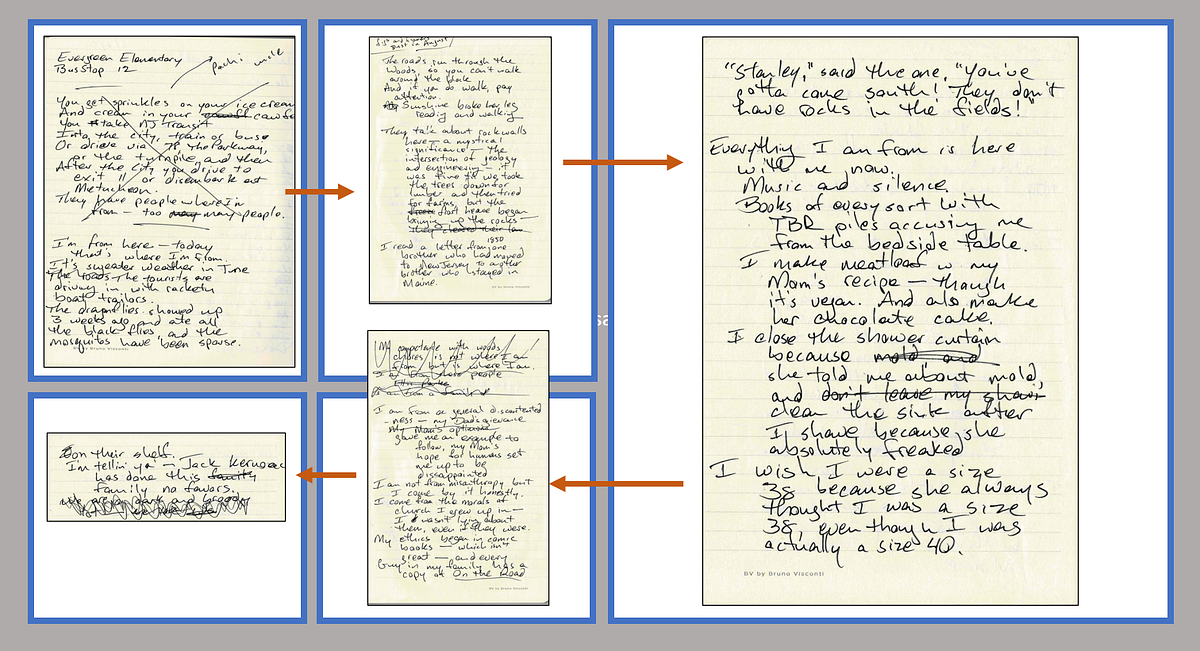 Evergreen Elementary
Bus Stop 12
You get sprinkles on your ice cream
And cream in your
You take NJ Transit
Into the city, train or bus
Or drive via 78, the Parkway,
or the turnpike, and then
After the city you drive to
exit 11 or disembark at
Metuchen.
They have people where I'm
from — too many people.
I'm from here — today
that's where I'm from.
It's sweater weather in June
The roads The tourists are
driving in with rackety
boat trailors.
The dragonflies showed up
3 weeks ago and ate all
the black flies and the
mosquitos have been sparse.
BV by Bruno Visconti
Dust in August
The roads run through the
Woods, so you can't walk
around the block
And if you do walk, pay
attention.
Sunshine broke her leg
reading and walking
They talk about rock walls
here — a mystical
significance — the
intersection of geology
and engineering — it
was fine til we took
the trees down for
lumber and then tried
for farms, but the
frost heave began
bringing up the rocks —
They cleared their
I read a letter from one 1850
brother who had moved
to New Jersey to another
brother who stayed in
Maine.
BV by Bruno Visconti
"Stanley," said the one, "You've
gotta come south! They don't
have rocks in the fields!"
Everything I am from is here
with me now.
Music and silence.
Books of every sort with
TBR piles accusing me
from the bedside table.
I make meatloaf w my
Mom's recipe — though
it's vegan. And also make
her chocolate cake.
I close the shower curtain
because mold and
she told me about mold,
and don't leave my
clean the sink after
I shave because she
absolutely freaked
I wish I were a size
38 because she always
thought I was a size
38, even though I was
actually a size 40.
BV by Bruno Visconti
My competence with woods
chores is not where I am
from, but is where I am.
I am from a
I am from a general discontented
-ness — my Dad's grievance
My Mom's optimism
gave me an example to
follow, my Mom's
hope for humans set
me up to be
disappointed
I am not from misanthropy but
I come by it honestly.
I come from the morals of
church I grew up in —
I wasn't lying about
them, even if they were.
My ethics began in comic
books — which isn't
great — and every
Guy in my family has a
copy of On the Road
BV by Bruno Visconti
on their shelf.
I'm tellin' ya — Jack Kerouac
has done this family
family no favors.